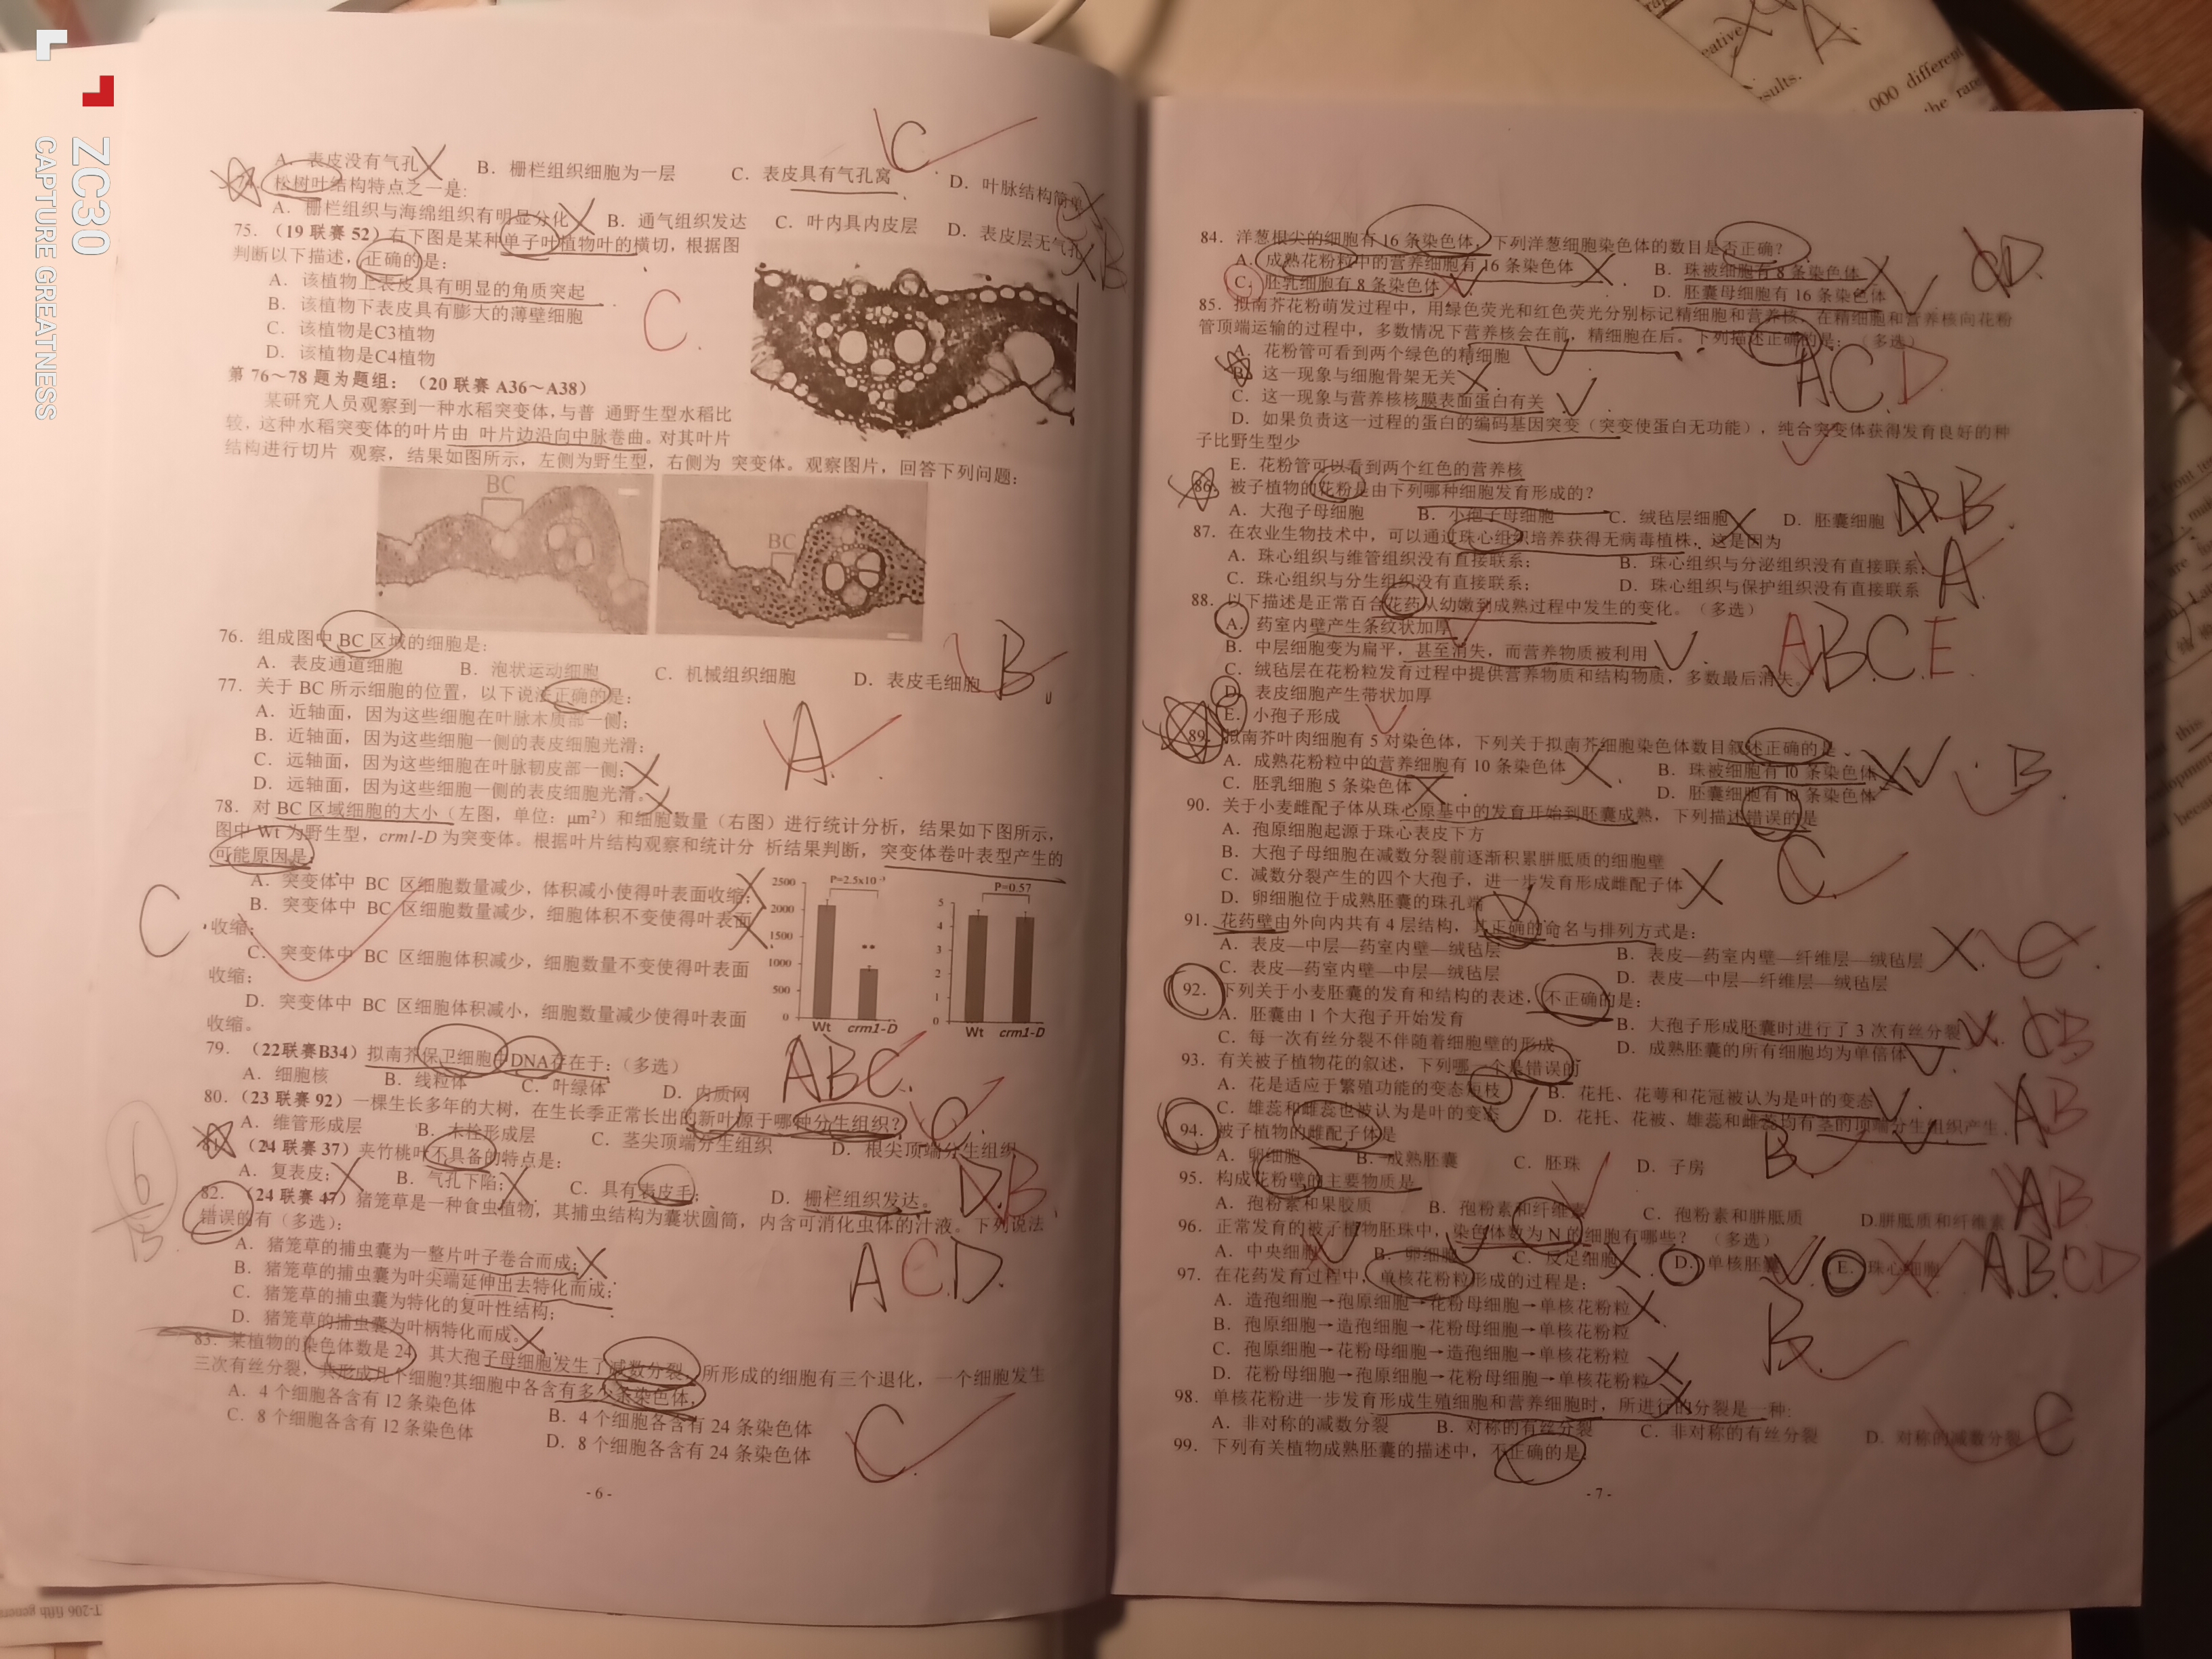 ZC30
CAPTURE GREATNESS
A. 表皮没有气孔 B. 栅栏组织细胞为一层 C. 表皮具有气孔窝 D. 叶脉结构简单
C
74. 松树叶结构特点之一是:
A. 栅栏组织与海绵组织有明显分化 B. 通气组织发达 C. 叶内具内皮层 D. 表皮层无气孔
B
75. (19 联赛 52) 右下图是某种单子叶植物叶的横切，根据图
判断以下描述，正确的是:
A. 该植物上表皮具有明显的角质突起
B. 该植物下表皮具有膨大的薄壁细胞
C. 该植物是C3植物
D. 该植物是C4植物
C
第 76～78 题为题组: (20 联赛 A36～A38)
某研究人员观察到一种水稻突变体，与普 通野生型水稻比
较，这种水稻突变体的叶片由 叶片边沿向中脉卷曲。对其叶片
结构进行切片 观察，结果如图所示，左侧为野生型，右侧为 突变体。观察图片，回答下列问题:
BC
BC
76. 组成图中 BC 区域的细胞是:
A. 表皮通道细胞 B. 泡状运动细胞 C. 机械组织细胞 D. 表皮毛细胞
B
77. 关于 BC 所示细胞的位置，以下说法正确的是:
A. 近轴面，因为这些细胞在叶脉木质部一侧;
B. 近轴面，因为这些细胞一侧的表皮细胞光滑;
C. 远轴面，因为这些细胞在叶脉韧皮部一侧;
D. 远轴面，因为这些细胞一侧的表皮细胞光滑。
A
78. 对 BC 区域细胞的大小（左图，单位: μm²）和细胞数量（右图）进行统计分析，结果如下图所示，
图中 Wt 为野生型，crm1-D 为突变体。根据叶片结构观察和统计分 析结果判断，突变体卷叶表型产生的
可能原因是:
A. 突变体中 BC 区细胞数量减少，体积减小使得叶表面收缩;
B. 突变体中 BC 区细胞数量减少，细胞体积不变使得叶表面
收缩;
C. 突变体中 BC 区细胞体积减少，细胞数量不变使得叶表面
收缩;
D. 突变体中 BC 区细胞体积减小，细胞数量减少使得叶表面
收缩。
C
P=2.5x10⁻³
2500
2000
1500
1000
500
0
Wt crm1-D
P=0.57
5
4
3
2
1
0
Wt crm1-D
79. (22联赛B34) 拟南芥保卫细胞中DNA存在于: (多选)
A. 细胞核 B. 线粒体 C. 叶绿体 D. 内质网
ABC
80. (23 联赛 92) 一棵生长多年的大树，在生长季正常长出的新叶源于哪种分生组织?
A. 维管形成层 B. 木栓形成层 C. 茎尖顶端分生组织 D. 根尖顶端分生组织
C
81. (24 联赛 37) 夹竹桃叶不具备的特点是:
A. 复表皮; B. 气孔下陷; C. 具有表皮毛; D. 栅栏组织发达。
B
82. (24 联赛 47) 猪笼草是一种食虫植物，其捕虫结构为囊状圆筒，内含可消化虫体的汁液。下列说法
错误的有 (多选):
A. 猪笼草的捕虫囊为一整片叶子卷合而成;
B. 猪笼草的捕虫囊为叶尖端延伸出去特化而成;
C. 猪笼草的捕虫囊为特化的复叶性结构;
D. 猪笼草的捕虫囊为叶柄特化而成。
ACD
83. 某植物的染色体数是 24，其大孢子母细胞发生了减数分裂，所形成的细胞有三个退化，一个细胞发生
三次有丝分裂，共形成几个细胞?其细胞中各含有多少条染色体,
A. 4 个细胞各含有 12 条染色体 B. 4 个细胞各含有 24 条染色体
C. 8 个细胞各含有 12 条染色体 D. 8 个细胞各含有 24 条染色体
C
- 6 -
84. 洋葱根尖的细胞有 16 条染色体，下列洋葱细胞染色体的数目是否正确?
A. 成熟花粉粒中的营养细胞有 16 条染色体 B. 珠被细胞有 8 条染色体
C. 胚乳细胞有 8 条染色体 D. 胚囊母细胞有 16 条染色体
D
85. 拟南芥花粉萌发过程中，用绿色荧光和红色荧光分别标记精细胞和营养核，在精细胞和营养核向花粉
管顶端运输的过程中，多数情况下营养核会在前，精细胞在后。下列描述正确的是: (多选)
A. 花粉管可看到两个绿色的精细胞
B. 这一现象与细胞骨架无关
C. 这一现象与营养核核膜表面蛋白有关
D. 如果负责这一过程的蛋白的编码基因突变（突变使蛋白无功能），纯合突变体获得发育良好的种
子比野生型少
E. 花粉管可以看到两个红色的营养核
ACD
86. 被子植物的花粉是由下列哪种细胞发育形成的?
A. 大孢子母细胞 B. 小孢子母细胞 C. 绒毡层细胞 D. 胚囊细胞
B
87. 在农业生物技术中，可以通过珠心组织培养获得无病毒植株，这是因为
A. 珠心组织与维管组织没有直接联系; B. 珠心组织与分泌组织没有直接联系;
C. 珠心组织与分生组织没有直接联系; D. 珠心组织与保护组织没有直接联系
A
88. 以下描述是正常百合花药从幼嫩到成熟过程中发生的变化。(多选)
A. 药室内壁产生条纹状加厚
B. 中层细胞变为扁平，甚至消失，而营养物质被利用
C. 绒毡层在花粉粒发育过程中提供营养物质和结构物质，多数最后消失
D. 表皮细胞产生带状加厚
E. 小孢子形成
ABCE
89. 拟南芥叶肉细胞有 5 对染色体，下列关于拟南芥细胞染色体数目叙述正确的是
A. 成熟花粉粒中的营养细胞有 10 条染色体 B. 珠被细胞有 10 条染色体
C. 胚乳细胞 5 条染色体 D. 胚囊细胞有 10 条染色体
B
90. 关于小麦雌配子体从珠心原基中的发育开始到胚囊成熟，下列描述错误的是
A. 孢原细胞起源于珠心表皮下方
B. 大孢子母细胞在减数分裂前逐渐积累胼胝质的细胞壁
C. 减数分裂产生的四个大孢子，进一步发育形成雌配子体
D. 卵细胞位于成熟胚囊的珠孔端
C
91. 花药壁由外向内共有 4 层结构，其正确的命名与排列方式是:
A. 表皮—中层—药室内壁—绒毡层 B. 表皮—药室内壁—纤维层—绒毡层
C. 表皮—药室内壁—中层—绒毡层 D. 表皮—中层—纤维层—绒毡层
C
92. 下列关于小麦胚囊的发育和结构的表述，不正确的是:
A. 胚囊由 1 个大孢子开始发育 B. 大孢子形成胚囊时进行了 3 次有丝分裂
C. 每一次有丝分裂不伴随着细胞壁的形成 D. 成熟胚囊的所有细胞均为单倍体
93. 有关被子植物花的叙述，下列哪一个是错误的
A. 花是适应于繁殖功能的变态短枝 B. 花托、花萼和花冠被认为是叶的变态
C. 雄蕊和雌蕊也被认为是叶的变态 D. 花托、花被、雄蕊和雌蕊均有茎的顶端分生组织产生
AB
94. 被子植物的雌配子体是
A. 卵细胞 B. 成熟胚囊 C. 胚珠 D. 子房
B
95. 构成花粉壁的主要物质是
A. 孢粉素和果胶质 B. 孢粉素和纤维素 C. 孢粉素和胼胝质 D.胼胝质和纤维素
AB
96. 正常发育的被子植物胚珠中，染色体数为 N 的细胞有哪些? (多选)
A. 中央细胞 B. 卵细胞 C. 反足细胞 D. 单核胚囊 E. 珠心细胞
ABCD
97. 在花药发育过程中，单核花粉粒形成的过程是:
A. 造孢细胞→孢原细胞→花粉母细胞→单核花粉粒
B. 孢原细胞→造孢细胞→花粉母细胞→单核花粉粒
C. 孢原细胞→花粉母细胞→造孢细胞→单核花粉粒
D. 花粉母细胞→孢原细胞→花粉母细胞→单核花粉粒
B
98. 单核花粉进一步发育形成生殖细胞和营养细胞时，所进行的分裂是一种:
A. 非对称的减数分裂 B. 对称的有丝分裂 C. 非对称的有丝分裂 D. 对称的减数分裂
C
99. 下列有关植物成熟胚囊的描述中，不正确的是:
- 7 -